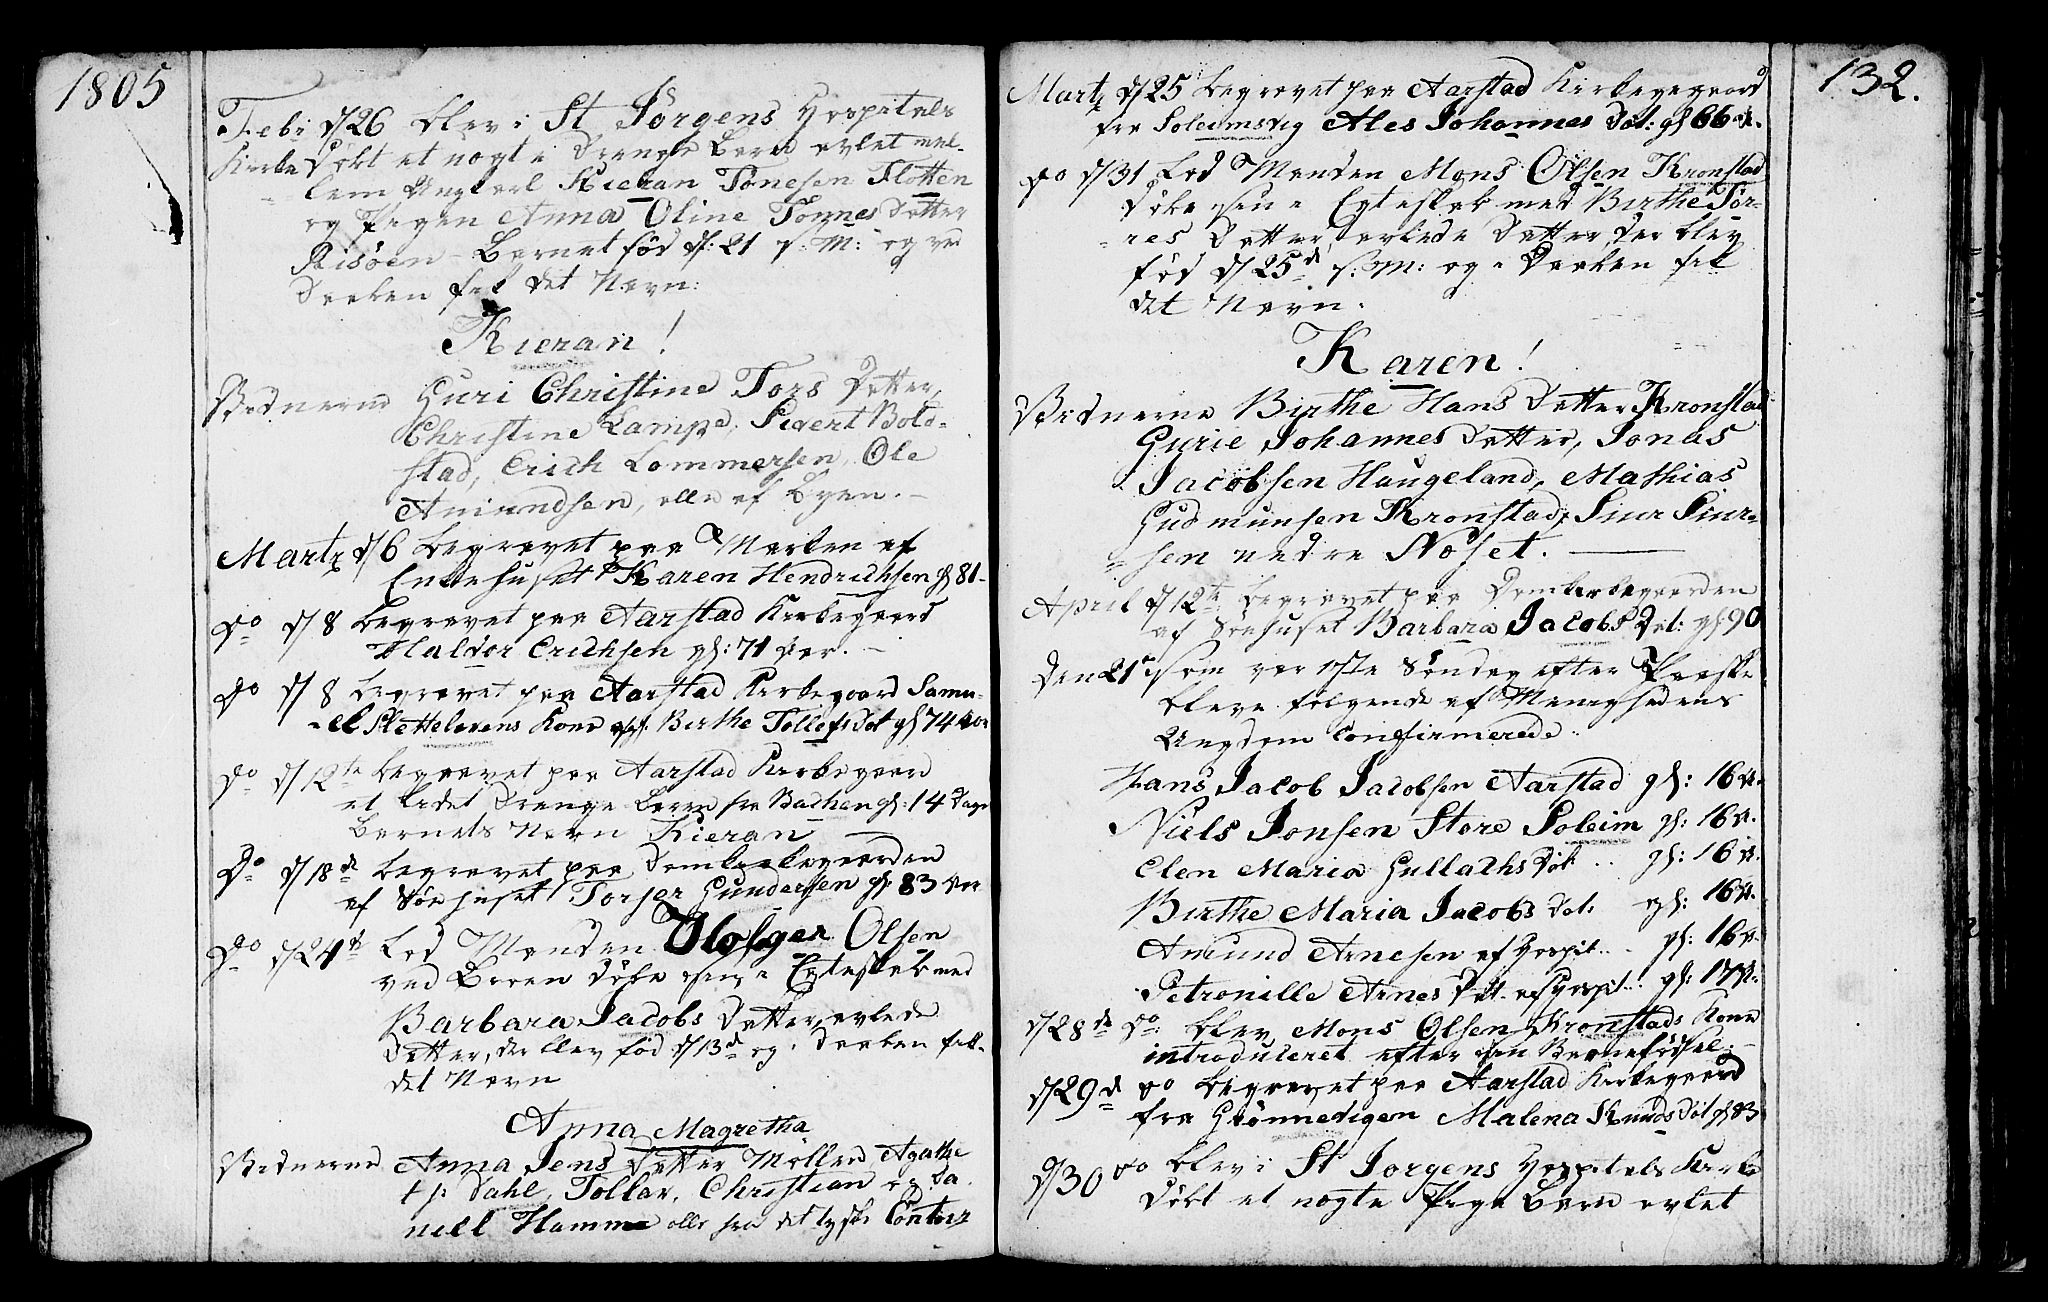 1805
Febr d/26 blev i St Jörgens Hospitals
Kirke Døbt et uægte Drenge Barn avlet mel-
lem Ungkarl Kieran Tönesen Flotten
og Pigen Anna Oline Tönnes Datter
Risöen - Barnet fød d: 21 s: M: og ved
Daaben fik det Navn:
Kieran!
Vidnerne Guri Christine Tors Datter,
Christine Lampe, Sivert Bold-
stad, Erich Lommersen, Ole
Amundsen, alle af Byen. -
Martz d/6 begravet paa Marken af
Enkehuset Karen Hendrichsen gl 81-
Do d/8 begravet paa Aarstad Kirkegaard
Haldor Erichsen gl: 71 Aar. -
Do d/8 begravet paa Aarstad Kirkegaard Samu-
-el Slettelevens Kone Birthe Tollefs Dat gl 74 Aar
Do d/12te begravet paa Aarstad Kirkegaard
et lidet Drenge Barn fra Bachen gl: 14 Dage
Barnets Navn Kieran
Do d/18de begravet paa Domkirkegaarden
af Söe huset Torger Gundersen gl: 83 Aar
Do d/24de Lod Manden Holger Olsen
ved Byen döbe sin i Egteskab med
Barbara Jacobs Datter, avlede
Datter, der blev fød d/13de og i Daaben fik
det Navn
Anna Magretha
Vidnerne Anna Jens Datter Möller, Agathe
t p: Dahl, Tollar, Christian og Da-
niell Hamme alle fra det tydske Contoir
132.
Martz d/25 begravet paa Aarstad Kirkegaard
fra Soleimsvig Ales Johannes Dat: gl 66 A.
Do d/31 Lod Manden Mons Olsen Kronstad
döbe sin i Egteskab med Birthe Tör-
res Datter, avlede Datter, der blev
fød d/25de s: M: og i Daaben fik
det Navn.
Karen!
Vidnerne Birthe Hans Datter Kronstad
Gurie Johannes Datter, Jonas
Jacobsen Haugeland, Mathias
Gudmunsen Kronstad, Siur Siur-
-sen nedre Nöset.
April d/12te begravet paa Domkirkegaarden
af Söehuset Barbara Jacobs Dat: gl: 90
Den 21 som var 1ste Søndag efter Paaske
bleve følgende af Menighedens
Ungdom Confirmerede.
Hans Jacob Jacobsen Aarstad gl: 16 A.
Niels Jonsen Store Soleim gl: 16 A.
Elen Maria Gullachs Dat .. gl: 16 A.
Birthe Maria Jacobs Dat: gl: 16 A.
Amund Arnesen af Hospit... gl: 16 A.
Petronille Arnes Dat. af Hospit... gl: 17 A.
d/28de do: blev Mons Olsen Kronstads Kone
introduceret efter sin Barnefödsel. -
d/29de do begravet paa Aarstad Kirkegaard
fra Grönnevigen Malena Knuds Dat gl 83
d/30 do blev i St Jorgens Hospitals Kirke
Døbt et uægte Pige Barn avlet